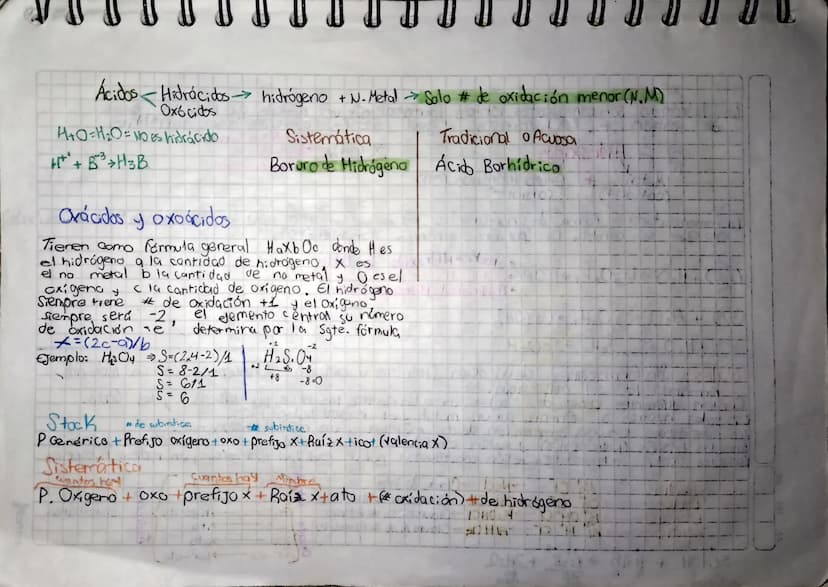 Ácidos < Hidrácidos → hidrógeno + N-Metal → Solo # de oxidación menor (N.M)
Oxácidos
H₂O=H₂O= no es hidrácido
Sistemática
Tradicional o Acuosa
H⁺¹ + B⁻³ → H₃B
Boruro de Hidrógeno
Ácido Borhídrico
Oxácidos y oxoácidos
Tieren como fórmula general HaXbOc donde H es
el hidrógeno a la cantidad de hidrógeno, x es
el no metal b la cantidad de no metal y O es el
oxígeno y c la cantidad de oxigeno. El hidrógeno
siempre tiene # de oxidación +1 y el oxígeno
siempre será -2, el elemento central su número
de oxidación se determina por la Sgte. fórmula
x=(2c-a)/b
Ejemplo: H₂O₄ ⇒ S=(2.4-2)/1
S= 8-2/1
S= 6/1
S= 6
+2 -2
H₂S.O₄
+2 -8
+8 -8=0
Stock # de subindice # subindice
P Genérico + Prefijo oxígeno + oxo + prefijo X + Raíz X + ico + (valencia X)
Sistemática
cuantos hay cuantos hay Nombre
P. Oxigeno + oxo + prefijo x + Raíz x + ato + (# oxidación) + de hidrógeno